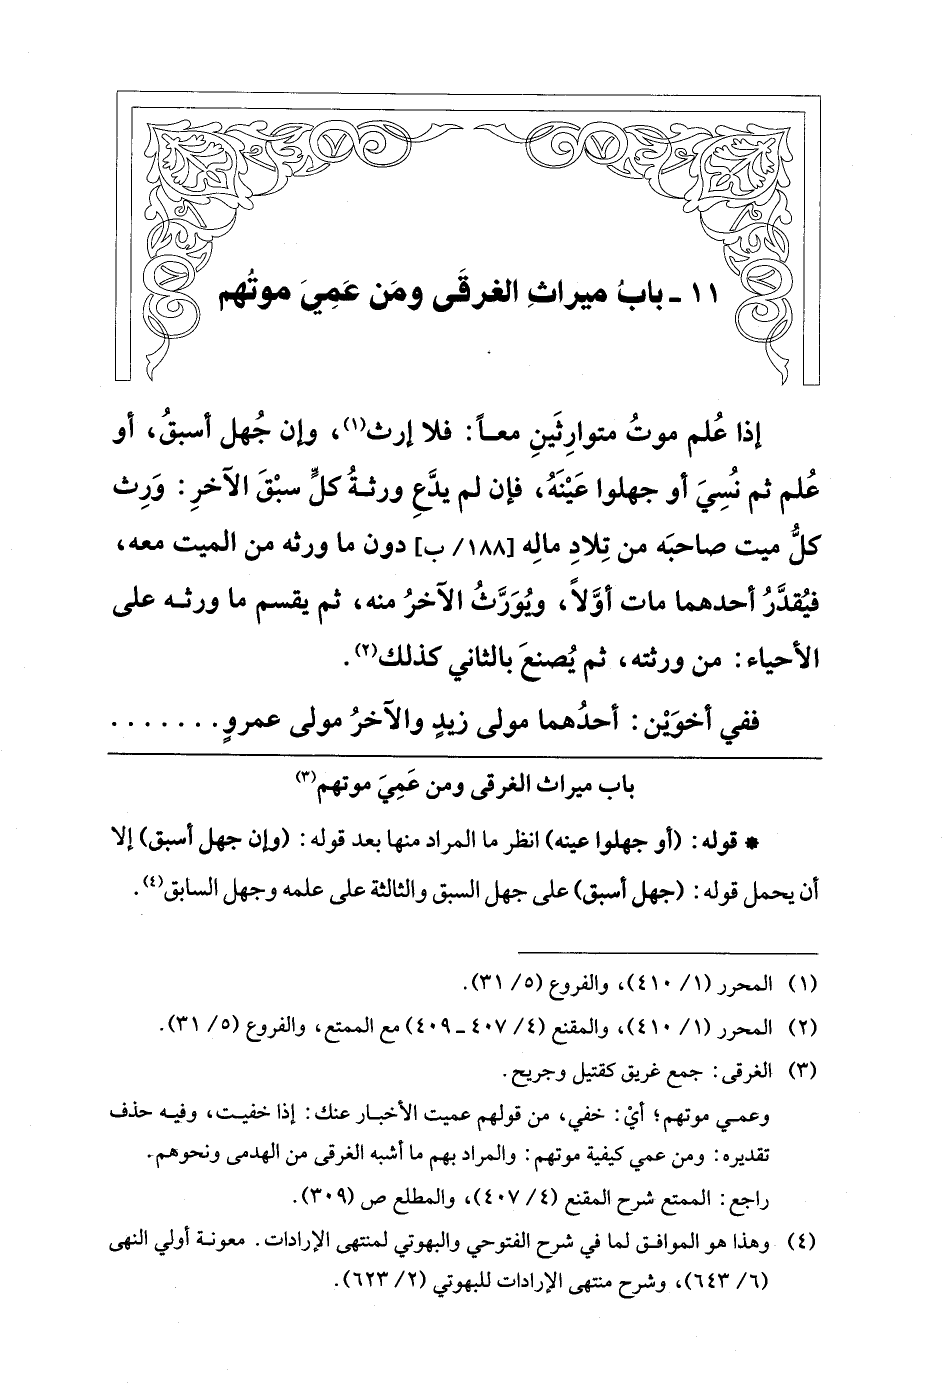 ١١ ـ بابُ ميراثِ الغرقَى ومَن عَمِيَ موتُهم
إذا عُلم موتُ متوارِثَينِ معـاً: فلا إرث(١)، وإن جُهل أسبقُ، أو
عُلم ثم نُسِيَ أو جهلوا عَيْنَهُ، فإن لم يدَّعِ ورثـةُ كلٍّ سبْقَ الآخرِ: وَرِث
كلُّ ميت صاحبَه من تِلادِ مالِه [١٨٨/ ب] دون ما ورثه من الميت معه،
فيُقدَّرُ أحدهما مات أوَّلاً، ويُوَرَّثُ الآخرُ منه، ثم يقسم ما ورثـه على
الأحياء: من ورثته، ثم يُصنعَ بالثاني كذلك(٢).
ففي أخوَيْن: أحدُهما مولى زيدٍ والآخرُ مولى عمروٍ.......
باب ميراث الغرقى ومن عَمِيَ موتهم(٣)
* قوله: (أو جهلوا عينه) انظر ما المراد منها بعد قوله: (وإن جهل أسبق) إلا
أن يحمل قوله: (جهل أسبق) على جهل السبق والثالثة على علمه وجهل السابق(٤).
(١) المحرر (١/ ٤١٠)، والفروع (٥/ ٣١).
(٢) المحرر (١/ ٤١٠)، والمقنع (٤/ ٤٠٧ ـ ٤٠٩) مع الممتع، والفروع (٥/ ٣١).
(٣) الغرقى: جمع غريق كقتيل وجريح.
وعمـي موتهم؛ أيْ: خفي، من قولهم عميت الأخبـار عنك: إذا خفيـت، وفيـه حذف
تقديره: ومن عمي كيفية موتهم: والمراد بهم ما أشبه الغرقى من الهدمى ونحوهم.
راجع: الممتع شرح المقنع (٤/ ٤٠٧)، والمطلع ص (٣٠٩).
(٤) وهذا هو الموافـق لما في شرح الفتوحي والبهوتي لمنتهى الإرادات. معونـة أولي النهى
(٦/ ٦٤٣)، وشرح منتهى الإرادات للبهوتي (٢/ ٦٢٣).